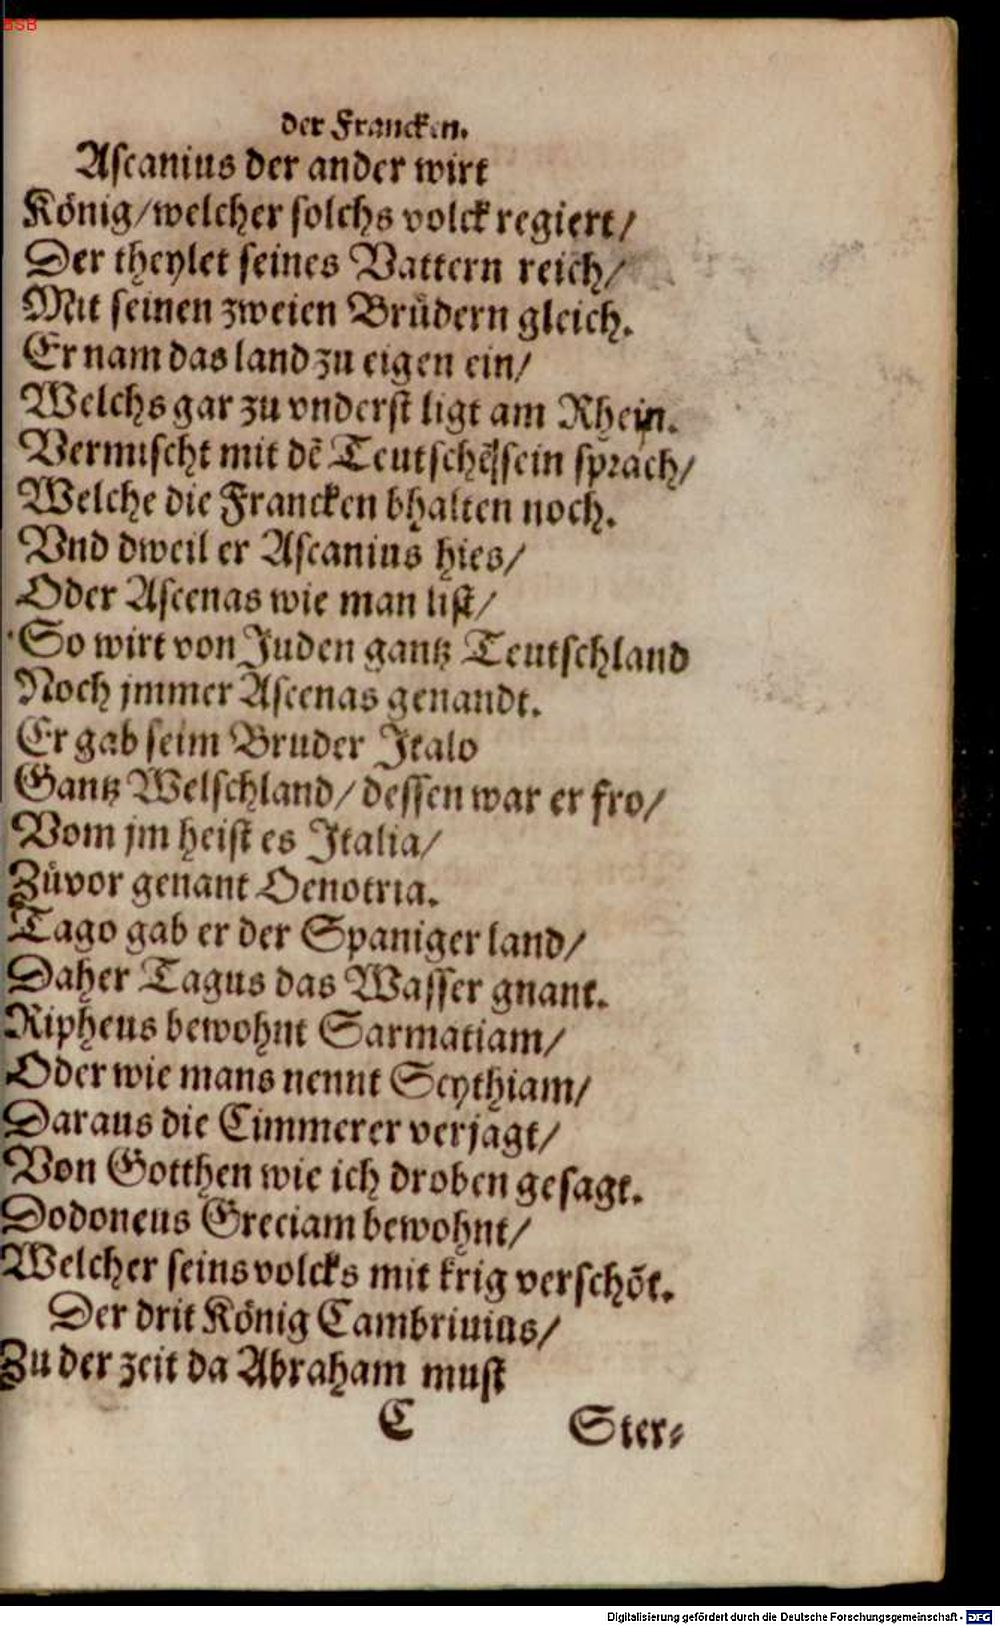 BSB
der Francken.
Ascanius der ander wirt
König/welcher solchs volck regiert/
Der theylet seines Vattern reich/
Mit seinen zweien Brüdern gleich.
Er nam das land zu eigen ein/
Welchs gar zu vnderst ligt am Rhein.
Vermischt mit dẽ Teutschẽ sein sprach/
Welche die Francken bhalten noch.
Vnd dweil er Ascanius hies/
Oder Ascenas wie man list/
So wirt von Juden gantz Teutschland
Noch jmmer Ascenas genandt.
Er gab seim Bruder Italo
Gantz Welschland/dessen war er fro/
Vom jm heist es Italia/
Züvor genant Oenotria.
Tago gab er der Spaniger land/
Daher Tagus das Wasser gnant.
Ripheus bewohnt Sarmatiam/
Oder wie mans nennt Scythiam/
Daraus die Cimmerer verjagt/
Von Gotthen wie ich droben gesagt.
Dodoneus Greciam bewohnt/
Welcher seins volcks mit krig verschõt.
Der drit König Cambriuius/
Zu der zeit da Abraham must
C Ster⸗
Digitalisierung gefördert durch die Deutsche Forschungsgemeinschaft - DFG